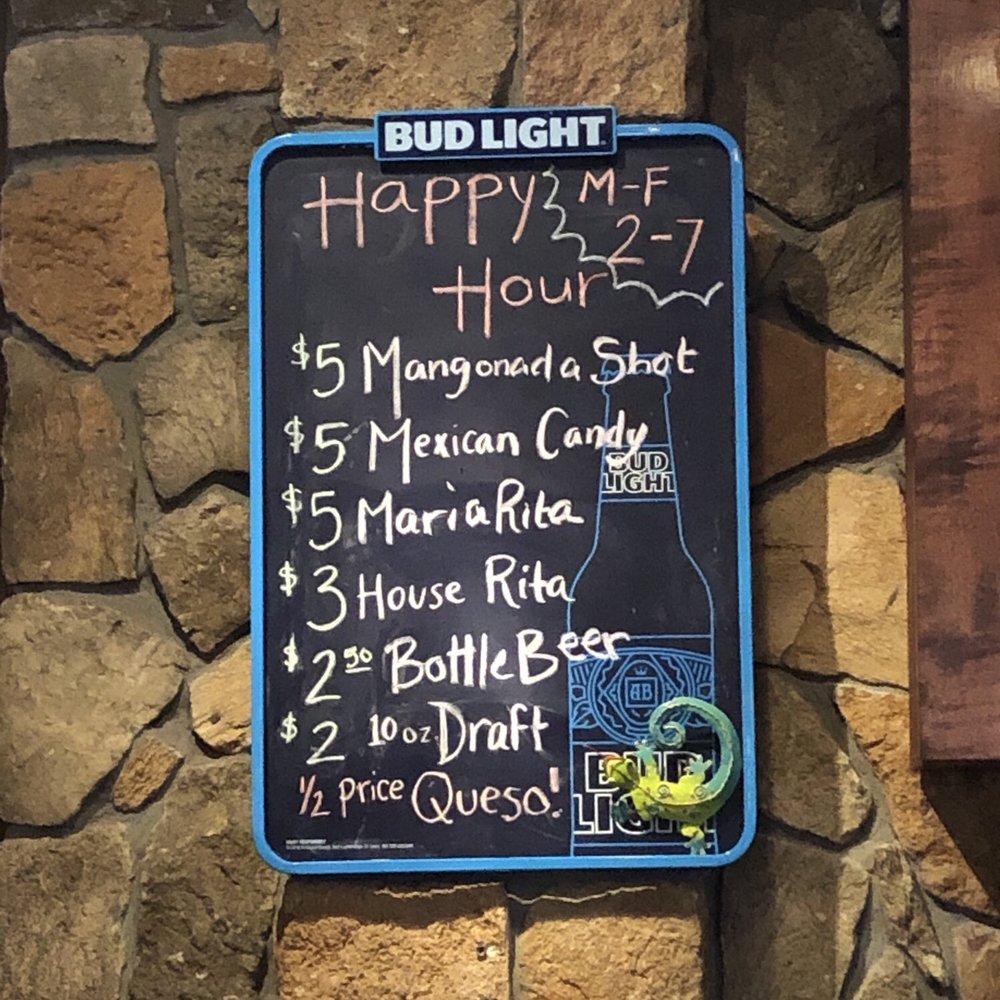 BUD LIGHT
Happy M-F
2-7
Hour
$5 Mangonada Shot
$5 Mexican Candy
BUD
LIGHT
$5 Maria Rita
$3 House Rita
$2 50 Bottle Beer
AB
$2 10 oz Draft
BUD
LIGHT
1/2 price Queso!